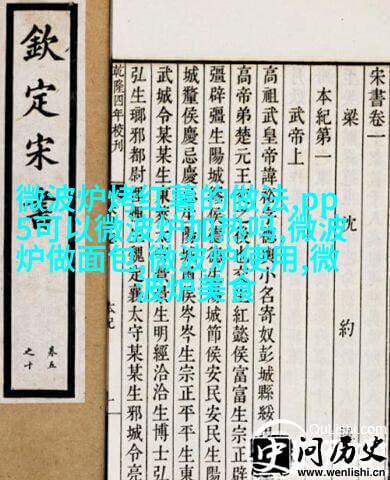 欽定宋書
卷五
之十
微波炉烤红薯的做法,pp
5可以微波炉加热吗,微波
炉做面包,微波炉使用,微
波炉美食
宋書卷一
梁 沈 約
本紀第一
武帝上
高祖武皇帝諱裕字德輿小名寄奴彭城縣綏
高帝弟楚元王交紅懿侯富富生宗
疆辟疆生陽城城節侯安民安民生陽
城釐侯慶忌慶忌岑岑生宗正平平生東
武城令某某生東生明經洽洽生博士弘
弘生瑯邪都尉悝魏定襄太守某某生邪城令亮
乾隆四年校刊
本紀
QuLishi.com
问历史
www.wenlishi.cn